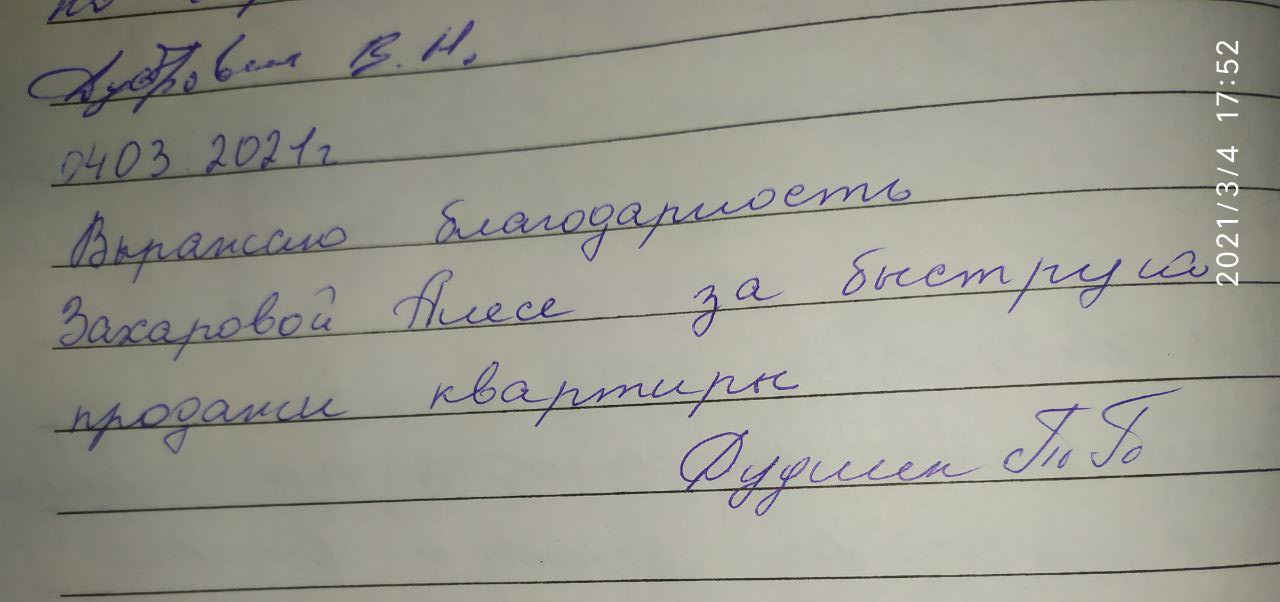 Дубровин В. Н.
04 03 2021г
Выражаю благодарность
Захаровой Алесе за быструю
продажи квартиры
2021/3/4 17:52